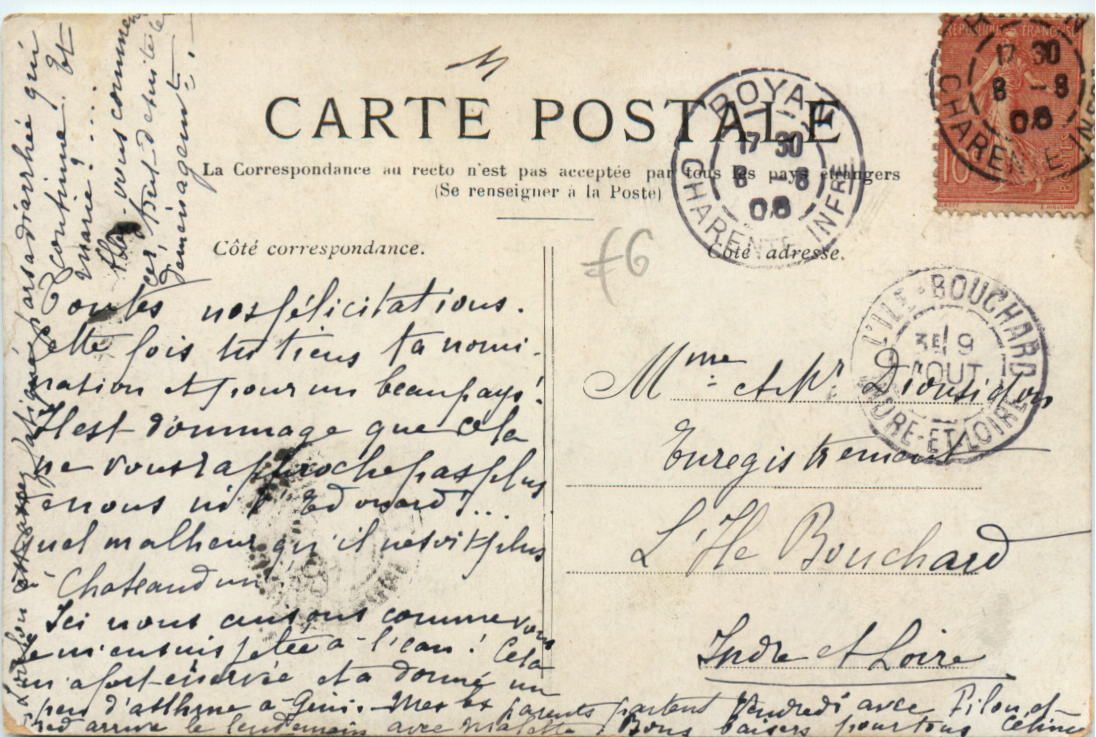 CARTE POSTALE
La Correspondance au recto n'est pas acceptée par tous les pays étrangers
(Se renseigner à la Poste)
Côté correspondance.
Côté adresse.
£6
RÉPUBLIQUE FRANÇAISE
10
17 30
8 - 8
06
CHARENTE INFRE
ROYAN
17 30
8 - 8
06
CHARENTE INFRE
L'ILE-BOUCHARD
3E / 9
AOUT
INDRE-ET-LOIRE
Mme et Mr
Enregistrement
L'Ile Bouchard
Indre et Loire
Toutes nos félicitations.
cette fois tu tiens ta nomi-
nation et pour un beau pays!
Il est dommage que cela
ne vous rapproche pas plus
de nous ni d'Edouard!...
quel malheur qu'il ne soit plus
à Chateaudun
Ici nous causons comme vous
je m'en suis jetée à l'eau! Cela
m'a fort énervée et a donné un
peu d'asthme à Mes bx parents partent Vendredi avec Filon et
arrive le lendemain avec Bons baisers pour tous Céline
fatigué par sa diarrhée qui
continue. Et
Marie? ....
vous commen-
cer tout de suite le
déménagement?